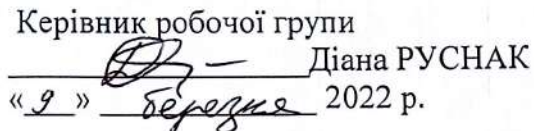 Керівник робочої групи
Діана РУСНАК
« 9 » березня 2022 р.